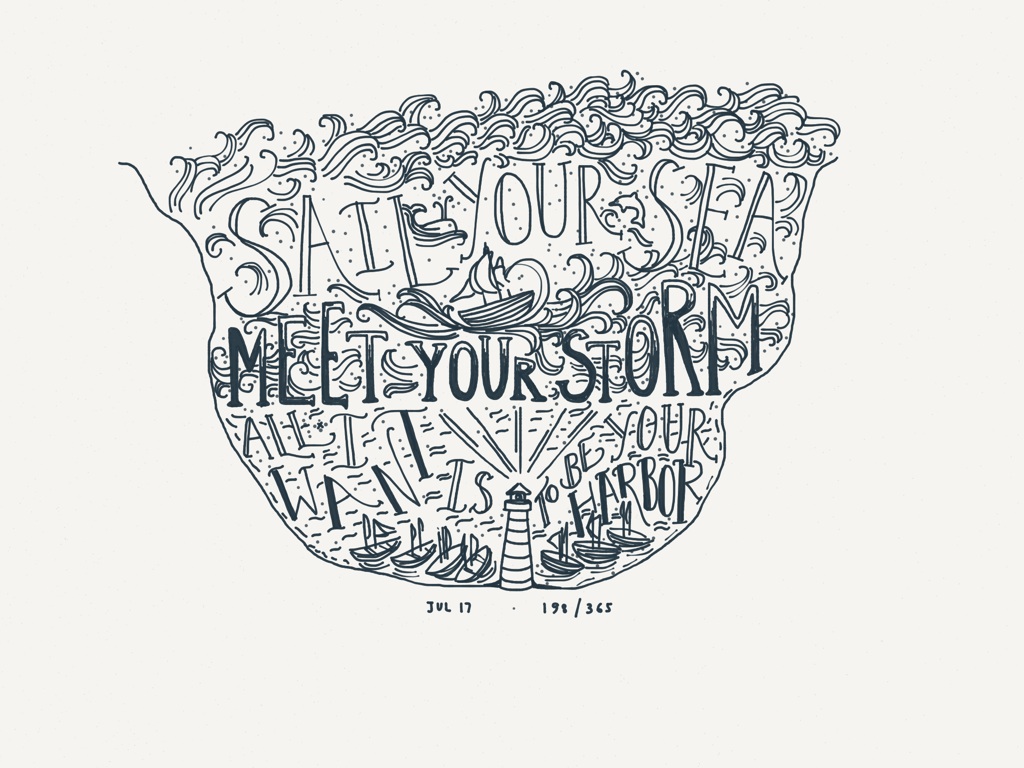 SAIL YOUR SEA
MEET YOUR STORM
ALL I
WANT IS
TO BE YOUR
HARBOR
JUL 17 · 198/365